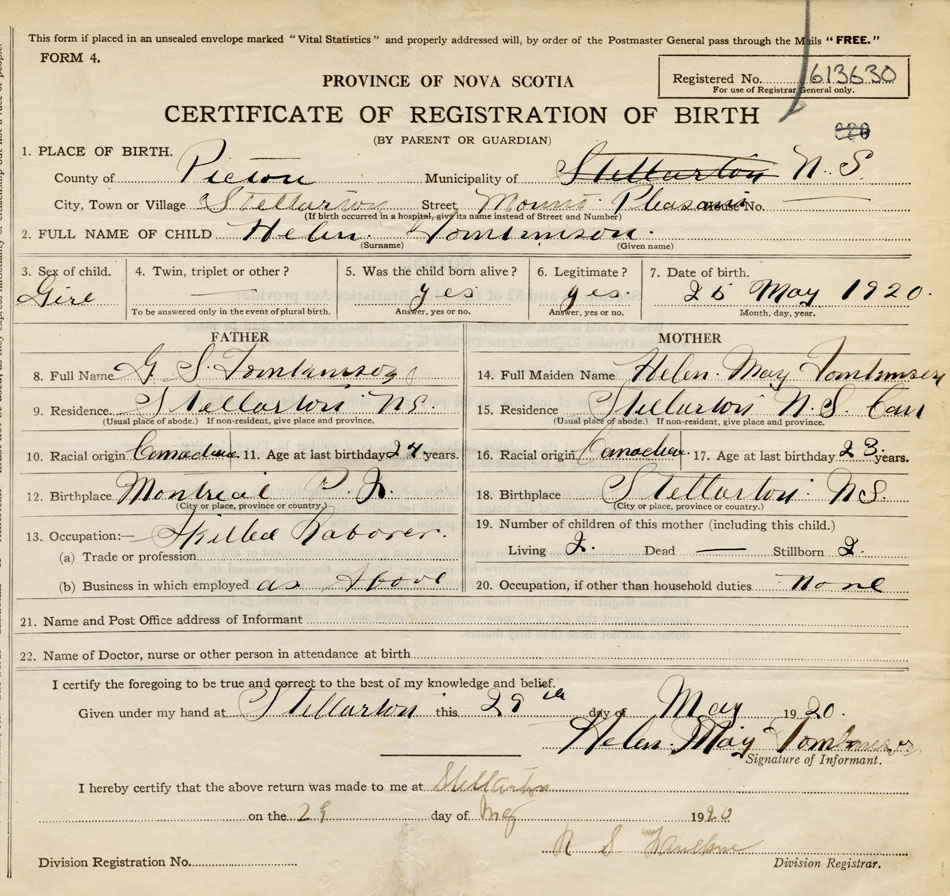 This form if placed in an unsealed envelope marked "Vital Statistics" and properly addressed will, by order of the Postmaster General pass through the Mails "FREE."
FORM 4.
PROVINCE OF NOVA SCOTIA
Registered No. 613630
For use of Registrar General only.
CERTIFICATE OF REGISTRATION OF BIRTH
(BY PARENT OR GUARDIAN)
1. PLACE OF BIRTH.
County of Pictou Municipality of Stellarton N. S.
City, Town or Village Stellarton Street Mount Pleasant House No.
(If birth occurred in a hospital, give its name instead of Street and Number)
2. FULL NAME OF CHILD Helen Tomkinson.
(Surname) (Given name)
3. Sex of child. 4. Twin, triplet or other? 5. Was the child born alive? 6. Legitimate? 7. Date of birth.
Girl — yes yes. 25 May 1920.
To be answered only in the event of plural birth. Answer, yes or no. Answer, yes or no. Month, day, year.
FATHER MOTHER
8. Full Name G S. Tomkinson 14. Full Maiden Name Helen May Tomkinson
9. Residence. Stellarton NS. 15. Residence Stellarton N.S. Can
(Usual place of abode.) If non-resident, give place and province. (Usual place of abode.) If non-resident, give place and province.
10. Racial origin Canadian 11. Age at last birthday 27 years. 16. Racial origin Canadian 17. Age at last birthday 23 years.
12. Birthplace Montreal P. 18. Birthplace Stellarton NS.
(City or place, province or country.) (City or place, province or country.)
13. Occupation:— Skilled Laborer. 19. Number of children of this mother (including this child.)
(a) Trade or profession Living 2. Dead — Stillborn 2.
(b) Business in which employed as Above 20. Occupation, if other than household duties none
21. Name and Post Office address of Informant
22. Name of Doctor, nurse or other person in attendance at birth
I certify the foregoing to be true and correct to the best of my knowledge and belief.
Given under my hand at Stellarton this 29th day of May 1920.
Helen May Tomkinson
Signature of Informant.
I hereby certify that the above return was made to me at Stellarton
on the 29 day of May 1920
Division Registration No. Division Registrar.